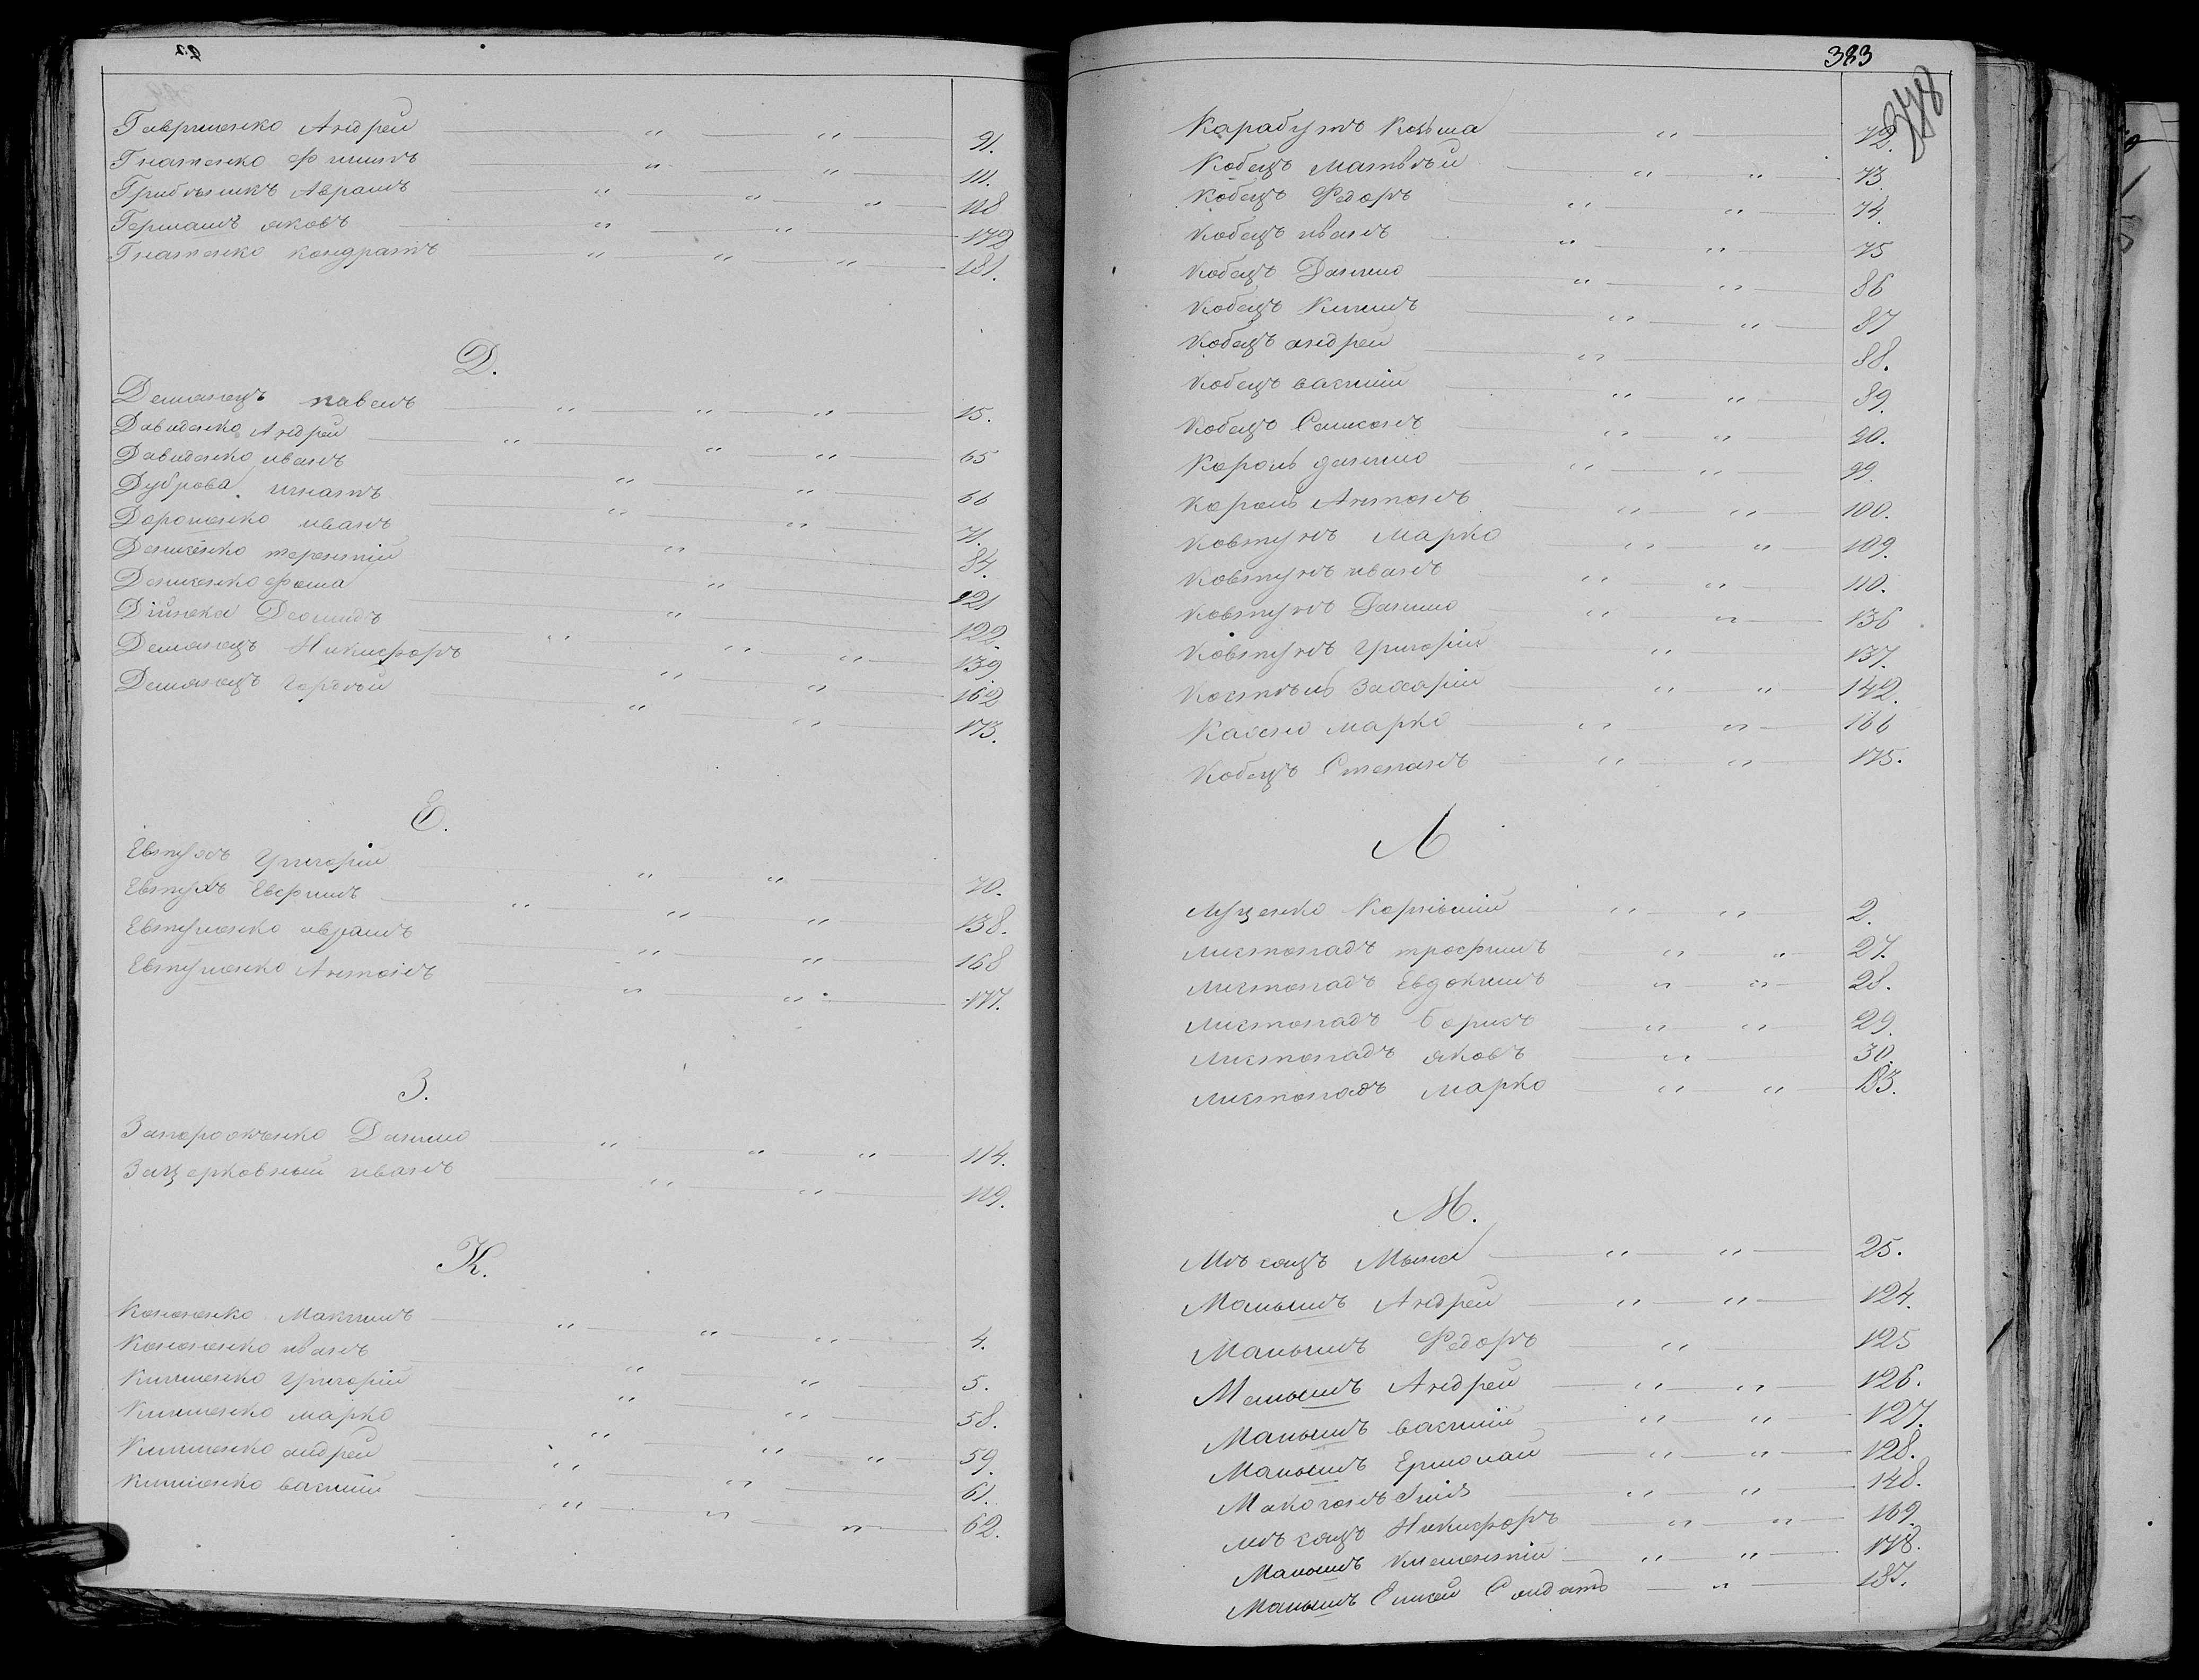 Гавриленко Андрей 91.
Гнатенко Филипъ 111.
Грибѣникъ Аврамъ 118
Германъ яковъ 172
Гнатенко кондратъ 181.
Д.
Деманецъ павелъ 15.
Давиденко Андрей 65
Давиденко иванъ 66
Дуброва игнатъ 71.
Дороненко иванъ 84.
Демченко терентій 121
Демченко фома 122.
Дійнека Деомидъ 139
Деманецъ Никифоръ 162
Деманецъ гордѣй 173.
Е.
Евтухъ Григорій 70.
Евтухъ Евфимъ 138.
Евтушенко аврамъ 168
Евтушенко Антонъ 177.
З.
Запорожченко Данило 114.
Зацерковный иванъ 119.
К.
Кононенко Максимъ 4.
Кононенко иванъ 5.
Килименко Григорій 58.
Килименко марко 59.
Килименко андрей 61.
Килименко василій 62.
383
378
Карабутъ Козьма 72.
Кобецъ Матвѣй 73.
Кобецъ Федоръ 74.
Кобецъ иванъ 75
Кобецъ Данило 86
Кобецъ Килимъ 87
Кобецъ андрей 88.
Кобецъ василій 89.
Кобецъ Самсонъ 90.
Король данило 99.
Король Антонъ 100.
Ковтунъ Марко 109.
Ковтунъ иванъ 110.
Ковтунъ Данило 136
Ковтунъ Григорій 137.
Костѣль Захарій 142.
марко 166
Кобецъ Степанъ 175.
Л
Луценко Корнѣлій 2.
Листопадъ трофимъ 27.
Листопадъ Евдокимъ 28.
Листопадъ борисъ 29.
Листопадъ яковъ 30.
Листопадъ марко 183.
М.
Мѣсяцъ Мына 25.
Малышъ Андрей 124.
Малышъ Федоръ 125
Малышъ Андрей 126.
Малышъ василій 127.
Малышъ Ермолай 128.
Макогонъ 148.
мѣсяцъ Никифоръ 169.
Малышъ Клементій 178.
Малышъ Елисей Солдатъ 187.